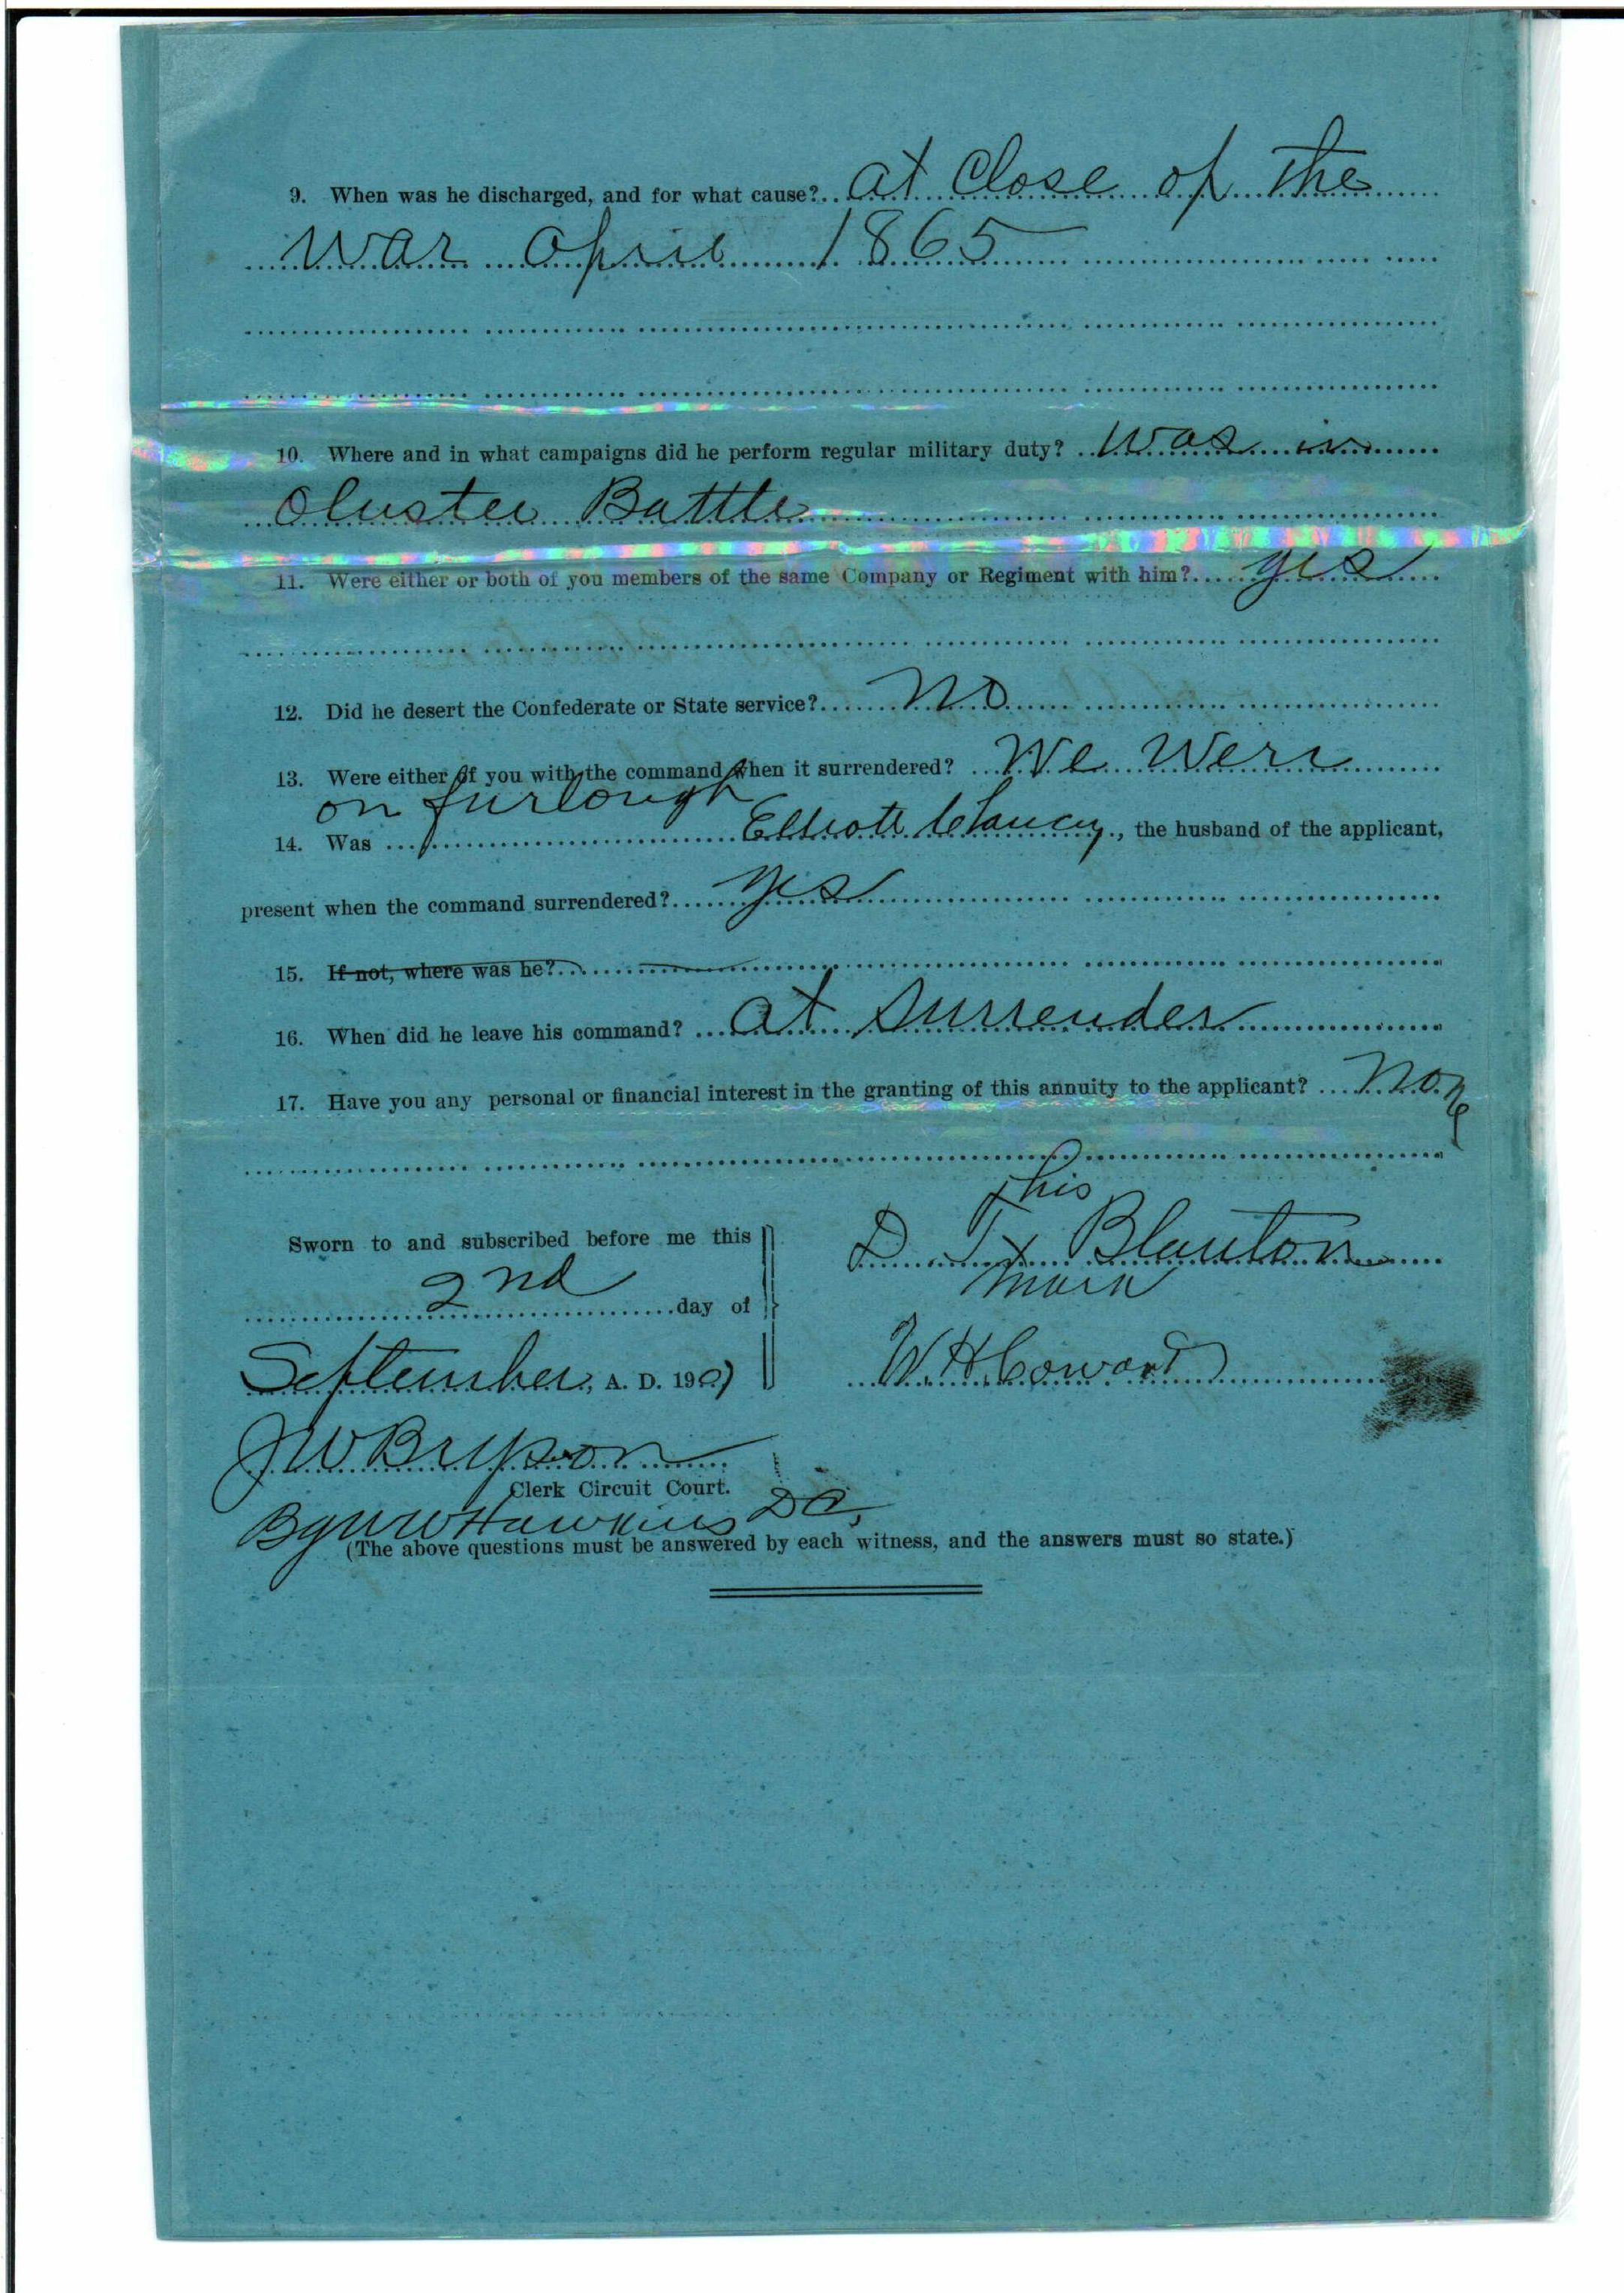 9. When was he discharged, and for what cause? at Close of the
war April 1865
10. Where and in what campaigns did he perform regular military duty? was in
Olustee Battle
11. Were either or both of you members of the same Company or Regiment with him? yes
12. Did he desert the Confederate or State service? No
13. Were either of you with the command when it surrendered? We Were
on furlough
14. Was Elliott Clancy, the husband of the applicant,
present when the command surrendered? yes
15. If not, where was he?
16. When did he leave his command? at Surrender
17. Have you any personal or financial interest in the granting of this annuity to the applicant? None
his
Sworn to and subscribed before me this D. T. x Blanton
mark
2nd day of
September, A. D. 190 W. H. Coward
J W Bryson
Clerk Circuit Court.
By W W Hawkins D C,
(The above questions must be answered by each witness, and the answers must so state.)